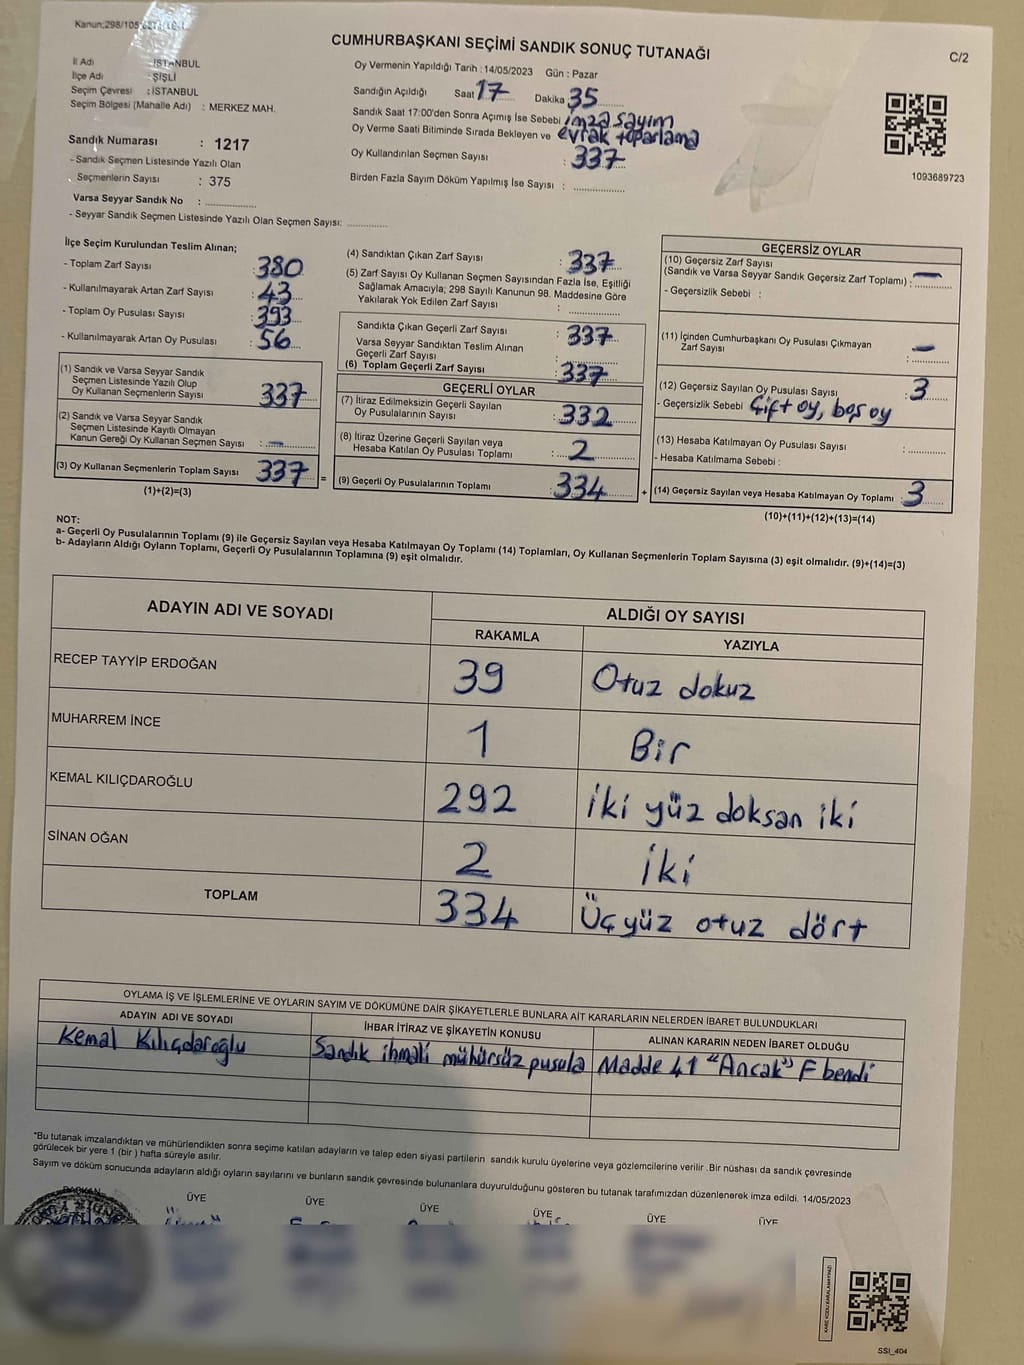 Kanun:298/105
CUMHURBAŞKANI SEÇİMİ SANDIK SONUÇ TUTANAĞI
C/2
İl Adı : İSTANBUL
İlçe Adı : ŞİŞLİ
Seçim Çevresi : İSTANBUL
Seçim Bölgesi (Mahalle Adı) : MERKEZ MAH.
Sandık Numarası : 1217
- Sandık Seçmen Listesinde Yazılı Olan
Seçmenlerin Sayısı : 375
Varsa Seyyar Sandık No : ..............
- Seyyar Sandık Seçmen Listesinde Yazılı Olan Seçmen Sayısı: ..............
Oy Vermenin Yapıldığı Tarih : 14/05/2023 Gün : Pazar
Sandığın Açıldığı Saat 17 Dakika 35
Sandık Saat 17:00'den Sonra Açımış İse Sebebi imza sayım
Oy Verme Saati Bitiminde Sırada Bekleyen ve evrak toparlama
Oy Kullandırılan Seçmen Sayısı : 337
Birden Fazla Sayım Döküm Yapılmış İse Sayısı : ..............
1093689723
İlçe Seçim Kurulundan Teslim Alınan;
- Toplam Zarf Sayısı : 380
- Kullanılmayarak Artan Zarf Sayısı : 43
- Toplam Oy Pusulası Sayısı : 393
- Kullanılmayarak Artan Oy Pusulası : 56
(1) Sandık ve Varsa Seyyar Sandık
Seçmen Listesinde Yazılı Olup
Oy Kullanan Seçmenlerin Sayısı : 337
(2) Sandık ve Varsa Seyyar Sandık
Seçmen Listesinde Kayıtlı Olmayan
Kanun Gereği Oy Kullanan Seçmen Sayısı : —
(3) Oy Kullanan Seçmenlerin Toplam Sayısı 337 =
(1)+(2)=(3)
(4) Sandıktan Çıkan Zarf Sayısı : 337
(5) Zarf Sayısı Oy Kullanan Seçmen Sayısından Fazla İse, Eşitliği
Sağlamak Amacıyla; 298 Sayılı Kanunun 98. Maddesine Göre
Yakılarak Yok Edilen Zarf Sayısı : ..............
Sandıkta Çıkan Geçerli Zarf Sayısı : 337
Varsa Seyyar Sandıktan Teslim Alınan
Geçerli Zarf Sayısı : ..............
(6) Toplam Geçerli Zarf Sayısı : 337
GEÇERLİ OYLAR
(7) İtiraz Edilmeksizin Geçerli Sayılan
Oy Pusulalarının Sayısı : 332
(8) İtiraz Üzerine Geçerli Sayılan veya
Hesaba Katılan Oy Pusulası Toplamı : 2
(9) Geçerli Oy Pusulalarının Toplamı : 334 +
GEÇERSİZ OYLAR
(10) Geçersiz Zarf Sayısı
(Sandık ve Varsa Seyyar Sandık Geçersiz Zarf Toplamı) : —
- Geçersizlik Sebebi :
(11) İçinden Cumhurbaşkanı Oy Pusulası Çıkmayan
Zarf Sayısı : —
(12) Geçersiz Sayılan Oy Pusulası Sayısı : 3
- Geçersizlik Sebebi Çift oy, boş oy
(13) Hesaba Katılmayan Oy Pusulası Sayısı : ..............
- Hesaba Katılmama Sebebi :
(14) Geçersiz Sayılan veya Hesaba Katılmayan Oy Toplamı : 3
(10)+(11)+(12)+(13)=(14)
NOT:
a- Geçerli Oy Pusulalarının Toplamı (9) ile Geçersiz Sayılan veya Hesaba Katılmayan Oy Toplamı (14) Toplamları, Oy Kullanan Seçmenlerin Toplam Sayısına (3) eşit olmalıdır. (9)+(14)=(3)
b- Adayların Aldığı Oyların Toplamı, Geçerli Oy Pusulalarının Toplamına (9) eşit olmalıdır.
ADAYIN ADI VE SOYADI
ALDIĞI OY SAYISI
RAKAMLA YAZIYLA
RECEP TAYYİP ERDOĞAN 39 Otuz dokuz
MUHARREM İNCE 1 Bir
KEMAL KILIÇDAROĞLU 292 iki yüz doksan iki
SİNAN OĞAN 2 iki
TOPLAM 334 Üçyüz otuz dört
OYLAMA İŞ VE İŞLEMLERİNE VE OYLARIN SAYIM VE DÖKÜMÜNE DAİR ŞİKAYETLERLE BUNLARA AİT KARARLARIN NELERDEN İBARET BULUNDUKLARI
ADAYIN ADI VE SOYADI İHBAR İTİRAZ VE ŞİKAYETİN KONUSU ALINAN KARARIN NEDEN İBARET OLDUĞU
Kemal Kılıçdaroğlu Sandık ihmali mühürsüz pusula Madde 41 "Ancak" F bendi
*Bu tutanak imzalandıktan ve mühürlendikten sonra seçime katılan adayların ve talep eden siyasi partilerin sandık kurulu üyelerine veya gözlemcilerine verilir .Bir nüshası da sandık çevresinde
görülecek bir yere 1 (bir ) hafta süreyle asılır.
Sayım ve döküm sonucunda adayların aldığı oyların sayılarını ve bunların sandık çevresinde bulunanlara duyurulduğunu gösteren bu tutanak tarafımızdan düzenlenerek imza edildi. 14/05/2023
BAŞKAN ÜYE ÜYE ÜYE ÜYE ÜYE ÜYE
KARE KODU KARALAMAYINIZ!
SSI_404